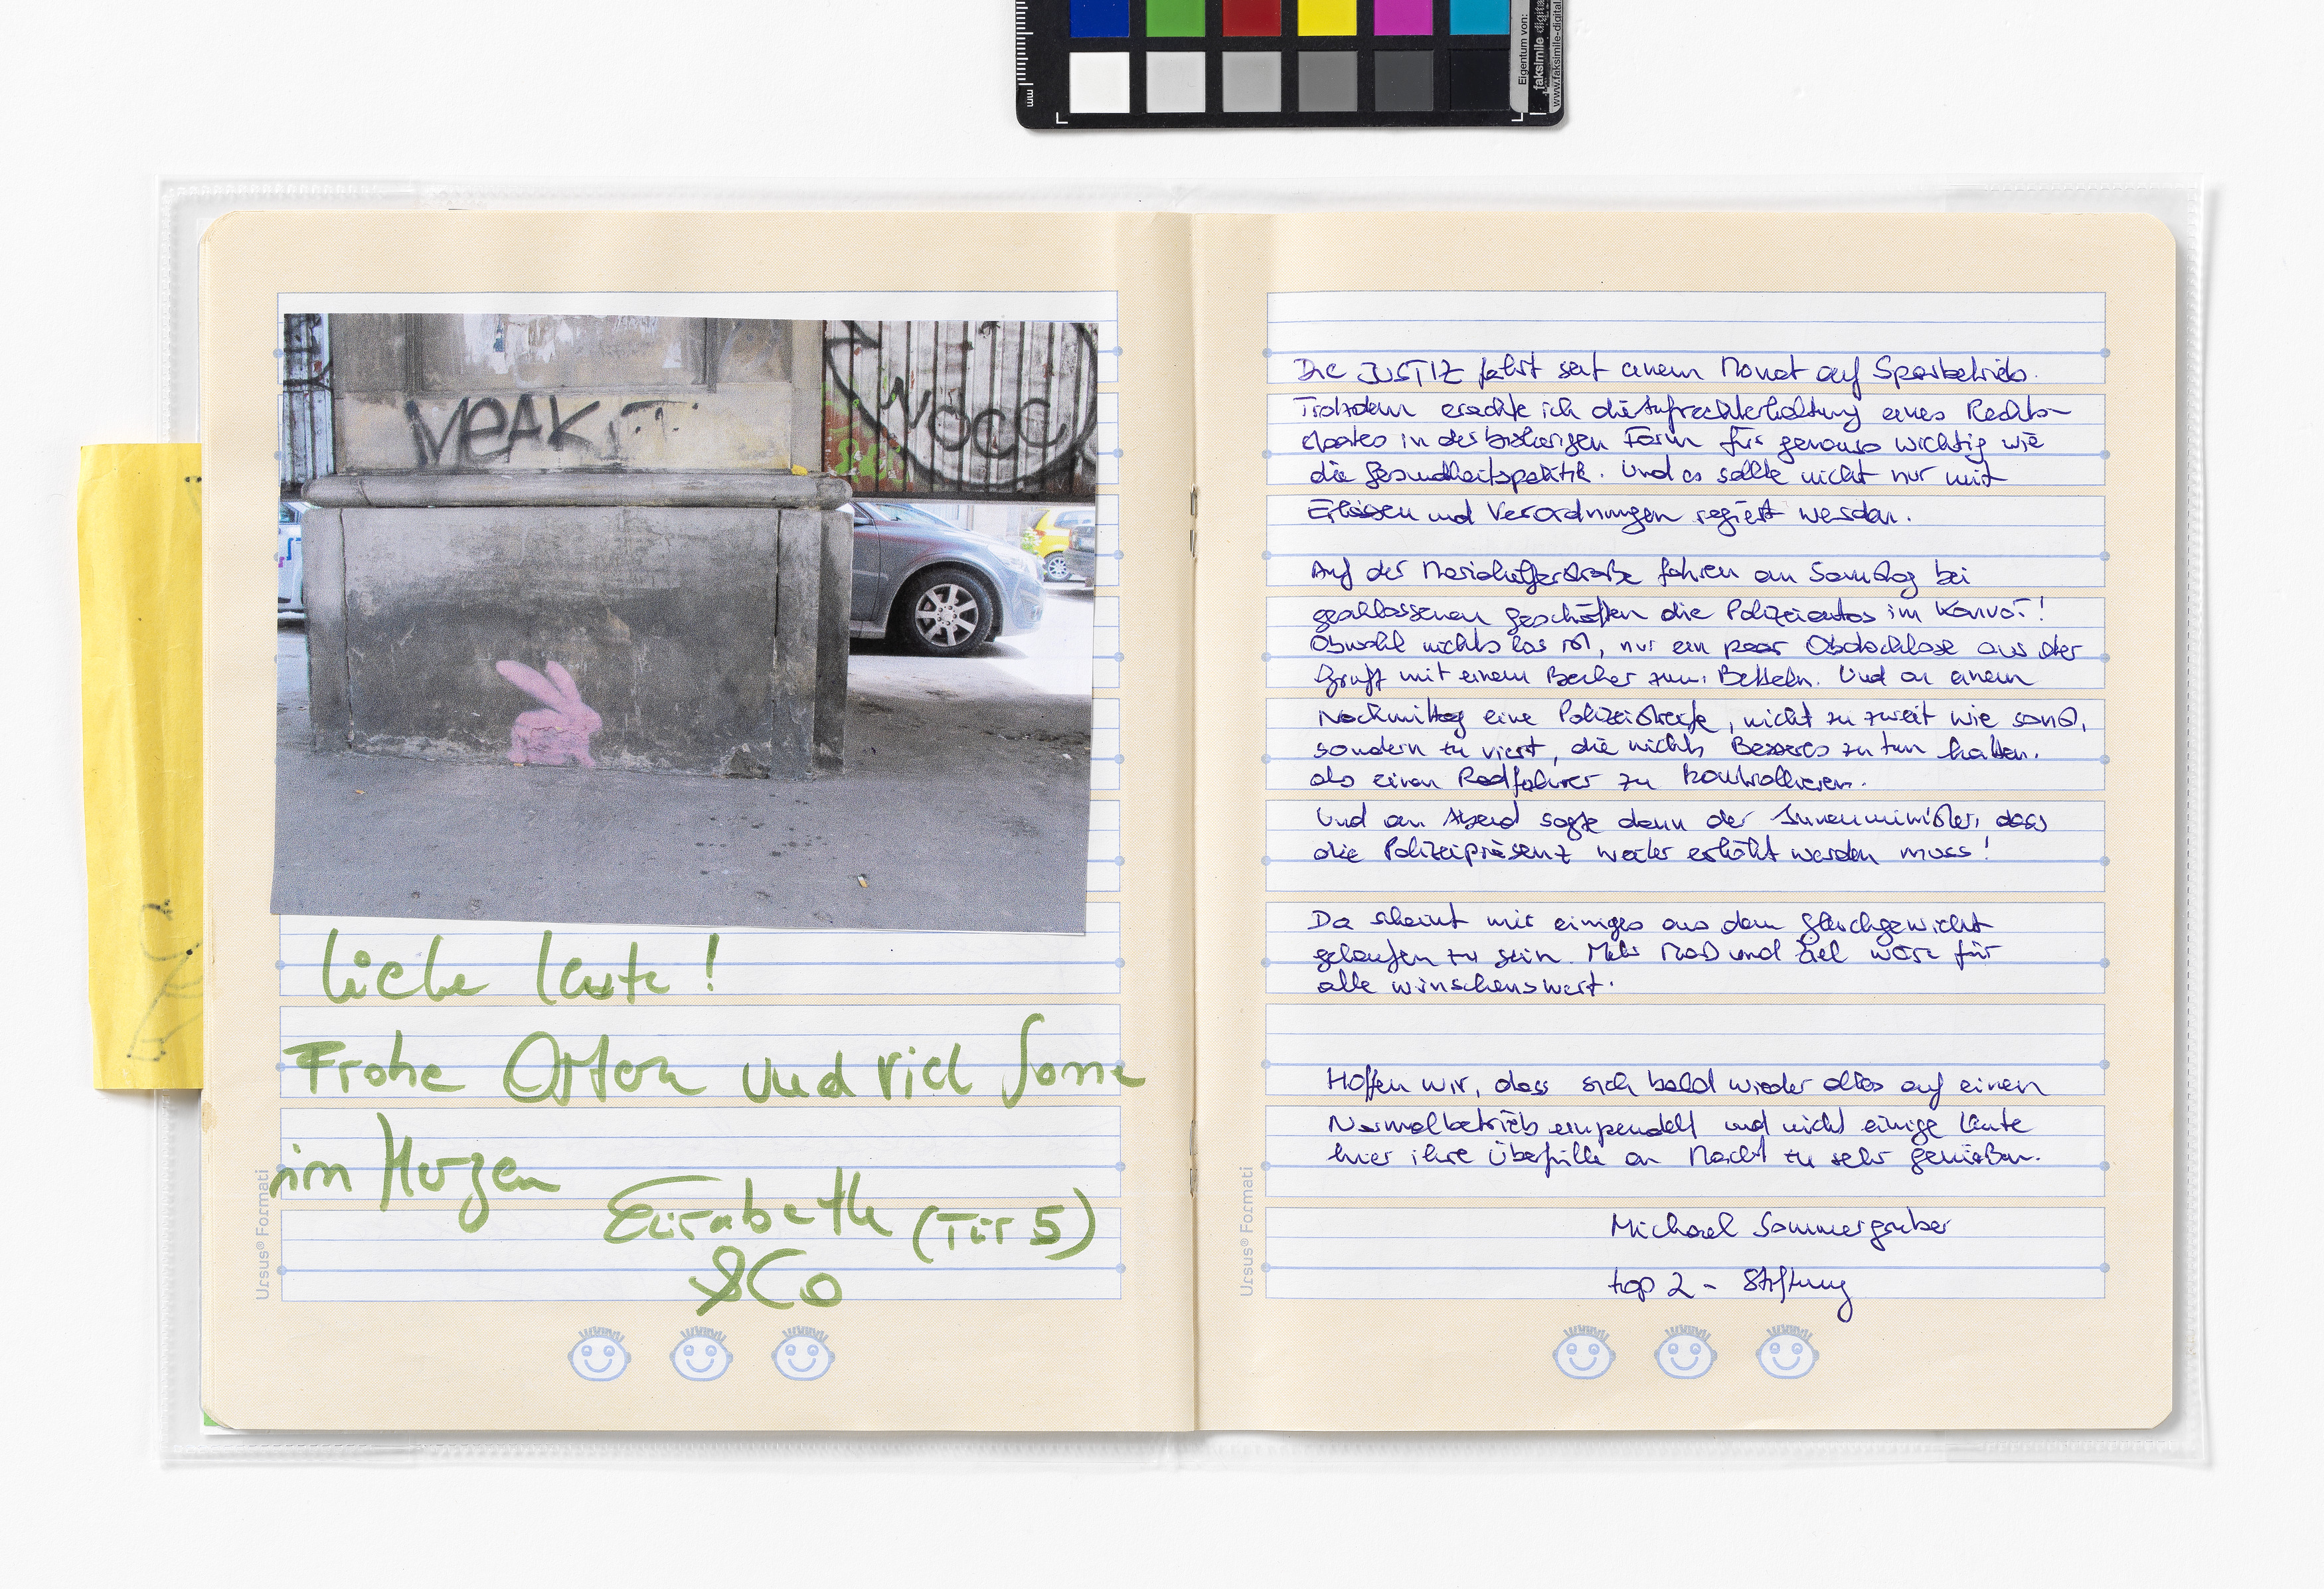 mm
Eigentum von:
faksimile digital
www.faksimile-digital
MEAK
WOCC
Liebe Leute!
Frohe Ostern und viel Sonne
im Herzen
Elisabeth (Tür 5)
&Co
Ursus® Formati
Die JUSTIZ fährt seit einem Monat auf Sparbetrieb.
Trotzdem erachte ich die Aufrechterhaltung eines Rechts-
staates in der bisherigen Form für genauso wichtig wie
die Gesundheitspolitik. Und es sollte nicht nur mit
Erlässen und Verordnungen regiert werden.
Auf der Mariahilferstraße fahren am Samstag bei
geschlossenen Geschäften die Polizeiautos im Konvoi!
Obwohl nichts los ist, nur ein paar Obdachlose aus der
Gruft mit einem Becher zum Betteln. Und an einem
Nachmittag eine Polizeistreife, nicht zu zweit wie sonst,
sondern zu viert, die nichts Besseres zu tun hatten.
als einen Radfahrer zu kontrollieren.
Und am Abend sagte dann der Innenminister, dass
die Polizeipräsenz weiter erhöht werden muss!
Da scheint mir einiges aus dem Gleichgewicht
gelaufen zu sein. Mehr Maß und Ziel wäre für
alle wünschenswert.
Hoffen wir, dass sich bald wieder alles auf einen
Normalbetrieb einpendelt und nicht einige Leute
hier ihre Überfülle an Macht zu sehr genießen.
Michael Sommergruber
top 2 - Stiftung
Ursus® Formati